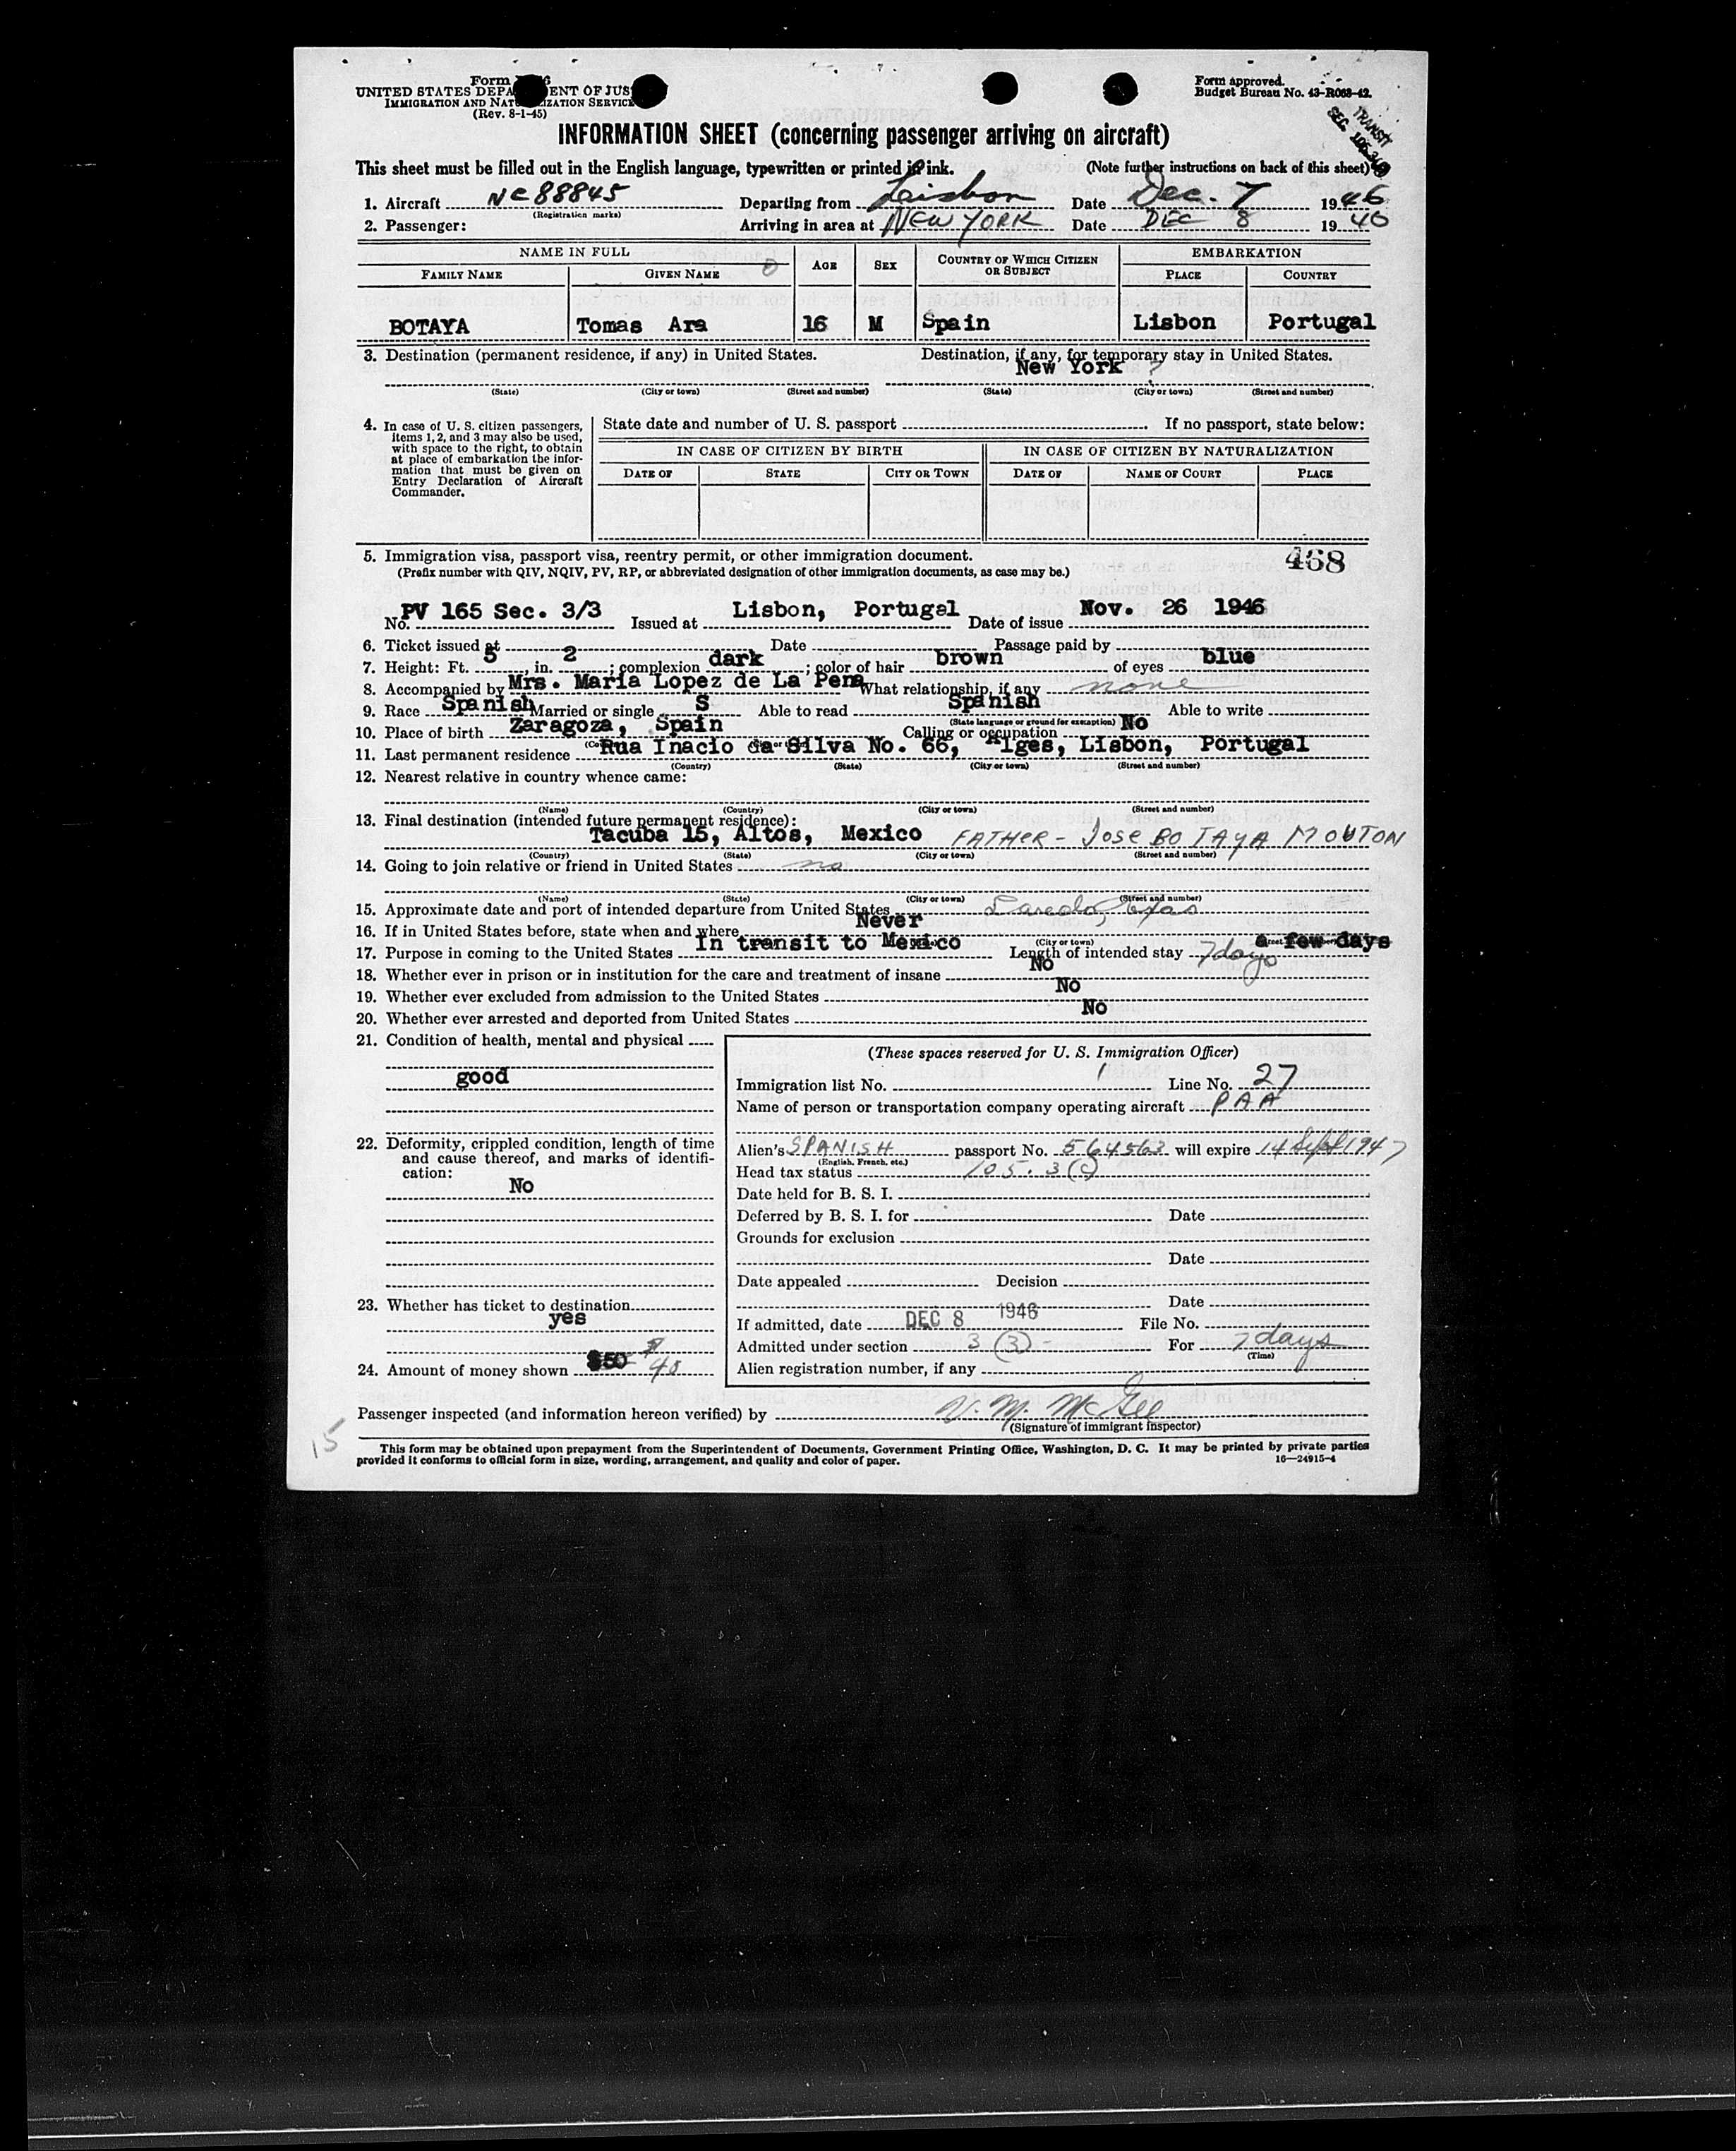 Form
UNITED STATES DEPA ENT OF JUS
IMMIGRATION AND NAT IZATION SERVICE
(Rev. 8-1-45)
Form approved.
Budget Bureau No. 43-R068-42.
TRANSIT
SEC.
INFORMATION SHEET (concerning passenger arriving on aircraft)
This sheet must be filled out in the English language, typewritten or printed in ink. (Note further instructions on back of this sheet)
1. Aircraft NC88845 Departing from Leisbon Date Dec. 7 1946
(Registration marks)
2. Passenger: Arriving in area at NEW YORK Date DEC 8 1946
NAME IN FULL AGE SEX COUNTRY OF WHICH CITIZEN OR SUBJECT EMBARKATION
FAMILY NAME GIVEN NAME PLACE COUNTRY
BOTAYA Tomas Ara 16 M Spain Lisbon Portugal
3. Destination (permanent residence, if any) in United States. Destination, if any, for temporary stay in United States.
New York ?
(State) (City or town) (Street and number) (State) (City or town) (Street and number)
4. In case of U. S. citizen passengers, items 1, 2, and 3 may also be used, with space to the right, to obtain at place of embarkation the information that must be given on Entry Declaration of Aircraft Commander.
State date and number of U. S. passport If no passport, state below:
IN CASE OF CITIZEN BY BIRTH IN CASE OF CITIZEN BY NATURALIZATION
DATE OF STATE CITY OR TOWN DATE OF NAME OF COURT PLACE
5. Immigration visa, passport visa, reentry permit, or other immigration document. 468
(Prefix number with QIV, NQIV, PV, RP, or abbreviated designation of other immigration documents, as case may be.)
No. PV 165 Sec. 3/3 Issued at Lisbon, Portugal Date of issue Nov. 26 1946
6. Ticket issued at Date Passage paid by
7. Height: Ft. 5, in. 2; complexion dark; color of hair brown of eyes blue
8. Accompanied by Mrs. Maria Lopez de La Pena What relationship, if any none
9. Race Spanish Married or single S Able to read Spanish Able to write
(State language or ground for exemption)
10. Place of birth Zaragoza, Spain Calling or occupation No
11. Last permanent residence Rua Inacio da Silva No. 66, Alges, Lisbon, Portugal
(Country) (State) (City or town) (Street and number)
12. Nearest relative in country whence came:
(Name) (Country) (City or town) (Street and number)
13. Final destination (intended future permanent residence):
Tacuba 15, Altos, Mexico FATHER - JOSE BOTAYA MOUTON
(Country) (State) (City or town) (Street and number)
14. Going to join relative or friend in United States no
(Name) (State) (City or town) (Street and number)
15. Approximate date and port of intended departure from United States Laredo, Texas
16. If in United States before, state when and where Never
(City or town)
17. Purpose in coming to the United States In transit to Mexico Length of intended stay 7 days a few days
18. Whether ever in prison or in institution for the care and treatment of insane No
19. Whether ever excluded from admission to the United States No
20. Whether ever arrested and deported from United States No
21. Condition of health, mental and physical
good
22. Deformity, crippled condition, length of time and cause thereof, and marks of identification:
No
23. Whether has ticket to destination
yes
24. Amount of money shown $50 $40
(These spaces reserved for U. S. Immigration Officer)
Immigration list No. 1 Line No. 27
Name of person or transportation company operating aircraft PAA
Alien's SPANISH passport No. 564563 will expire 14 Sept 1947
(English, French, etc.)
Head tax status 105.3(c)
Date held for B. S. I.
Deferred by B. S. I. for Date
Grounds for exclusion
Date
Date appealed Decision
Date
If admitted, date DEC 8 1946 File No.
Admitted under section 3 (3) - For 7 days
(Time)
Alien registration number, if any
Passenger inspected (and information hereon verified) by V. M. McGee
(Signature of immigrant inspector)
15
This form may be obtained upon prepayment from the Superintendent of Documents, Government Printing Office, Washington, D. C. It may be printed by private parties
provided it conforms to official form in size, wording, arrangement, and quality and color of paper. 16—24915-4